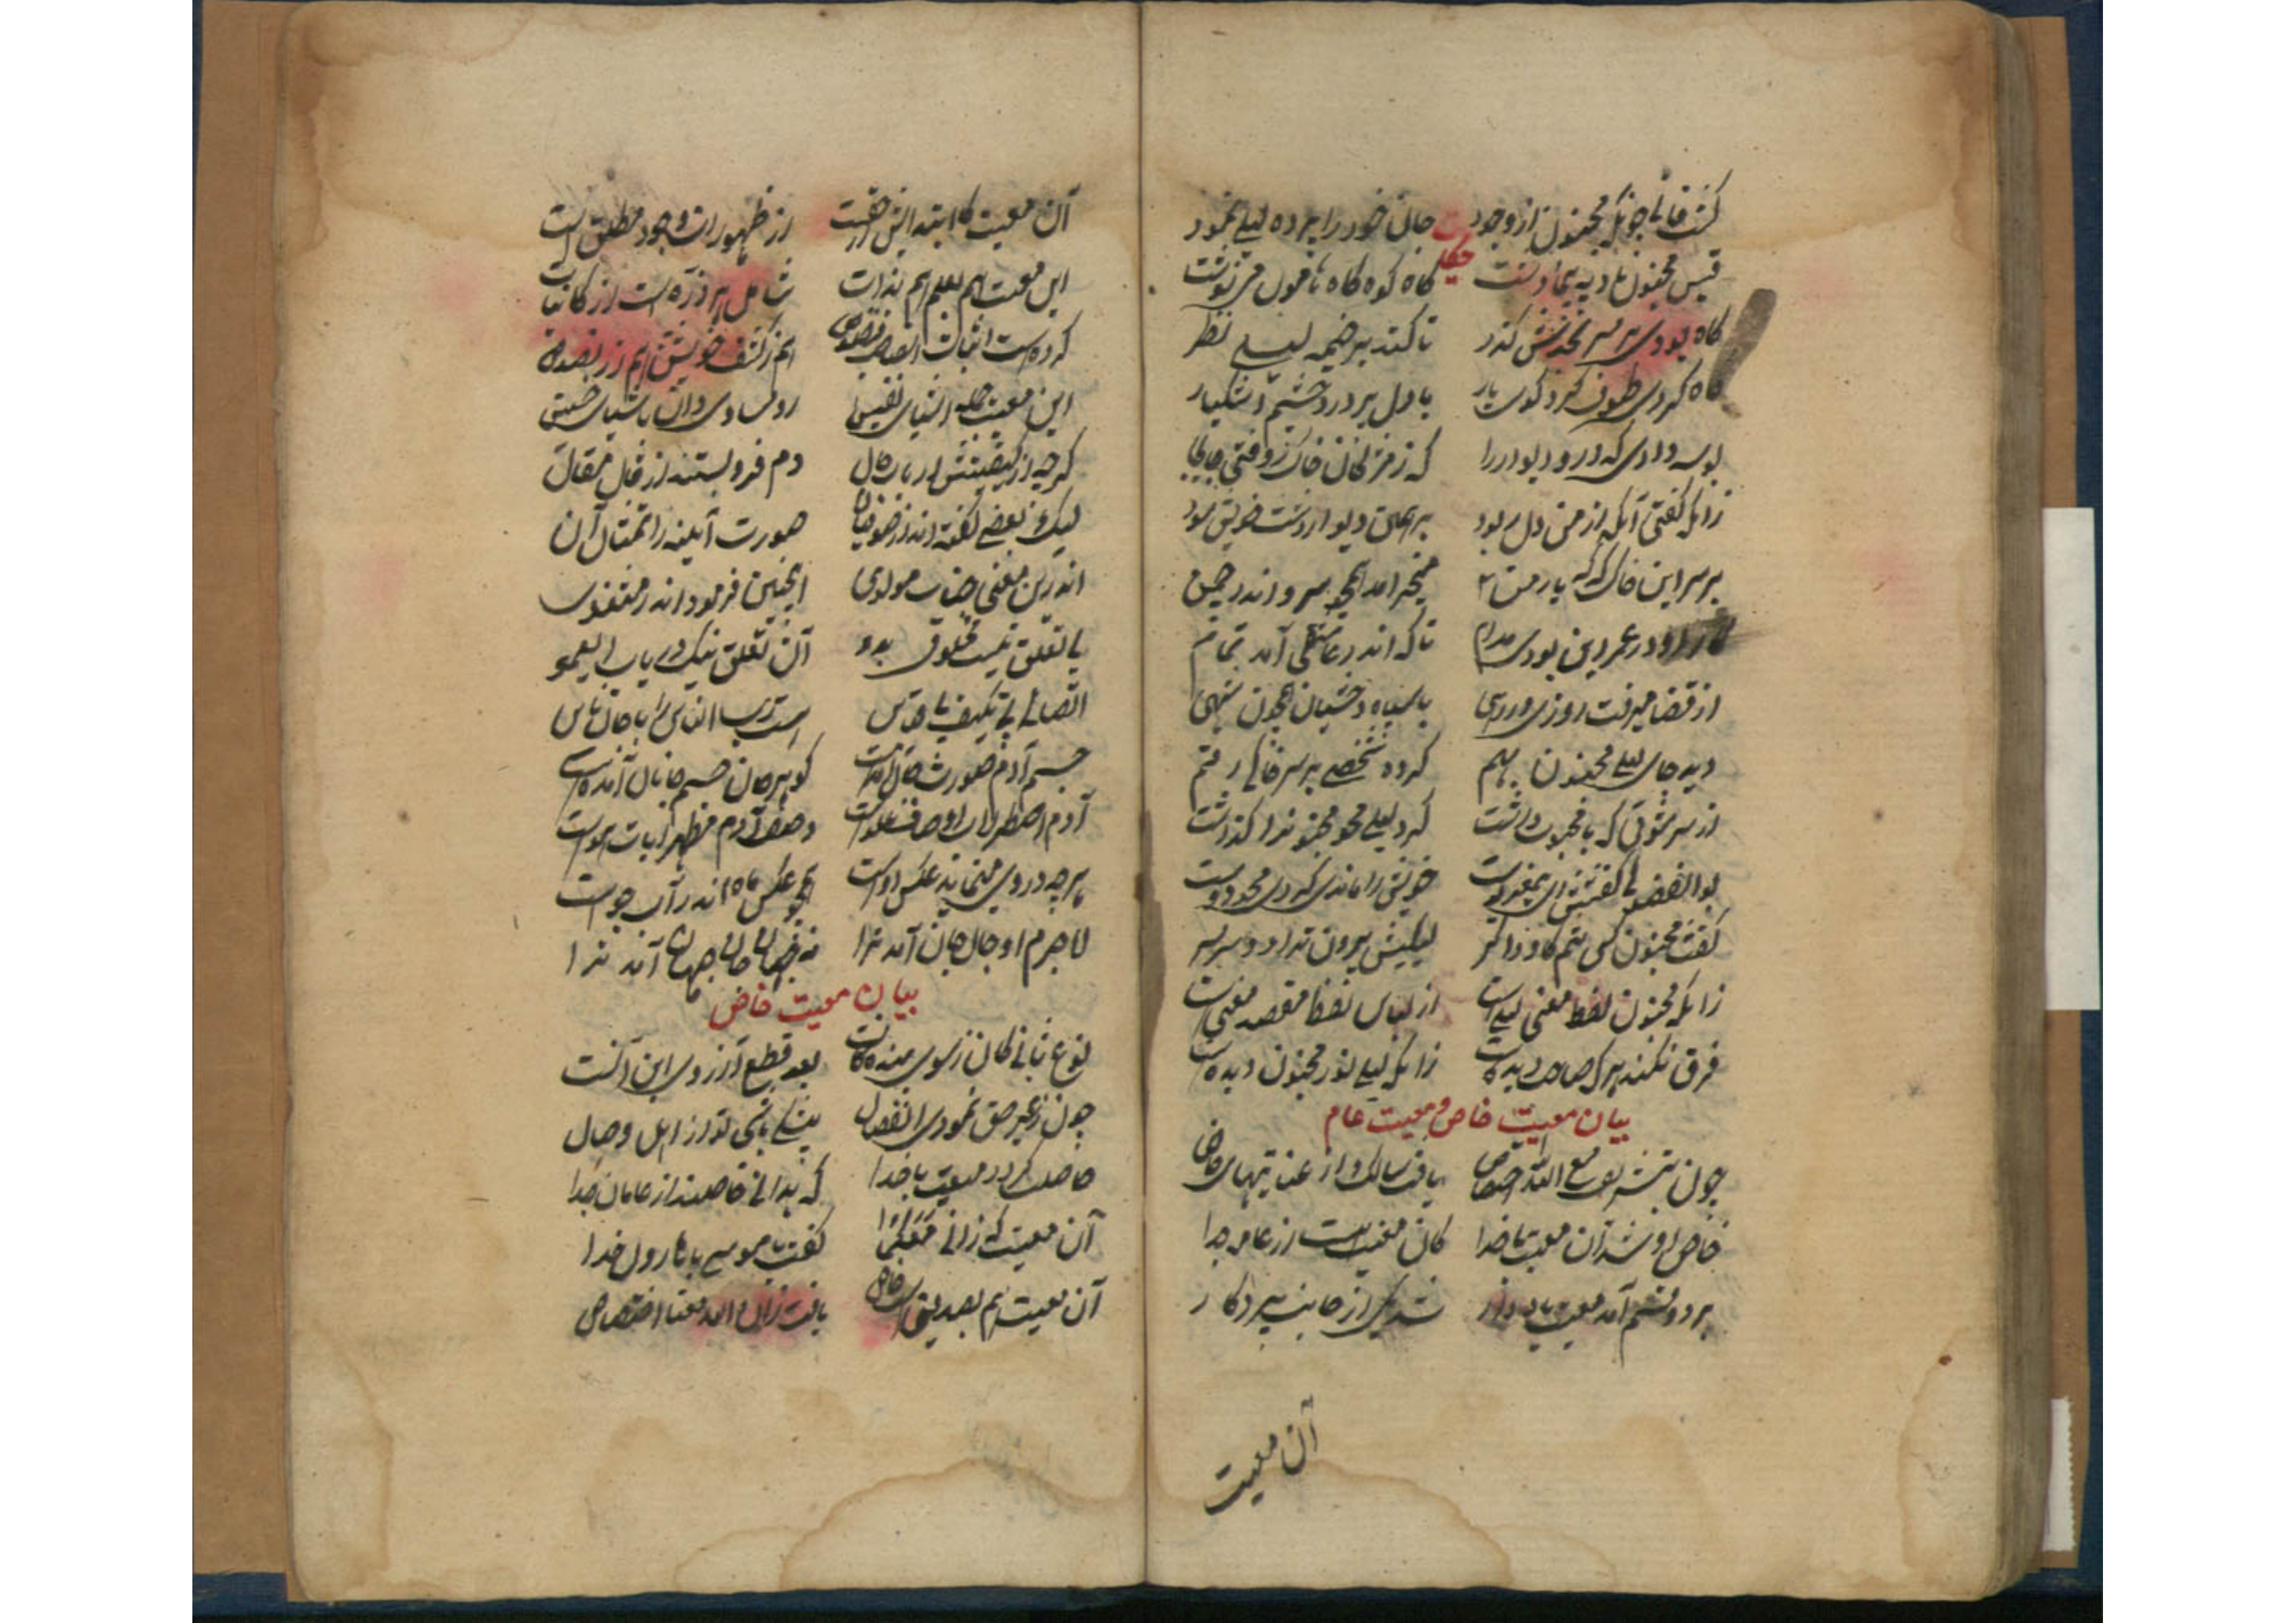 گشت فانی چونکه مجنون از وجود جان خود را پرده لیلی نمود
حکایت
قیس مجنون بادیه پیما و دشت گاه کوه گاه هامون می نوشت
گاه بودی بر سر نجدش گذر تا کند بر خیمه لیلی نظر
گاه کردی طوف گرد کوی یار با دل پر درد و چشم اشکبار
بوسه دادی که در و دیوار را که ز مژگان خاک رفتی
زانکه گفتی آنکه از من دل ربود بر همین دیوار دست خویش سود
بر سر این خاک که که یار من میخرامد همچو سرو اندر چمن
کار او در عمر این بودی مدام تا که اندر عاشقی آمد تمام
از قضا میرفت روزی در رهی با سپاه وحشیان همچون شهی
دید جای لیلی مجنون بهم کرده شخصی بر سر خاکی رقم
از سر شوقی که با محبوب داشت کرد لیلی محو مجنون را گذاشت
بوالفضولی گفتش ای خویش را ماندی که کردی محو دوست
گفت مجنون لیلیش بیرون ندارد و سر بسر
زانکه مجنون لفظ معنی لیلی است از لباس لفظ مقصد معنی است
فرق نکند هر که صاحب دیده است زانکه لیلی نور مجنون دیده است
بیان معیت خاص و معیت عام
چون بتشریف مع الله اختصاص یافت سالک از عنایتهای خاص
خاص او شد آن معیت با خدا کان معیت هست از عامه جدا
بر دو قسم آمد معیت شد یکی از جانب پروردگار
آن معیت
آن معیت کابتدایش از حقست از ظهورات وجود مطلق است
این معیت هم بعلم هم بذات شامل هر ذره است از کائنات
کرده است اثبات هم ز کشف خویش هم از
این معیت جمله اشیای نفیس دان با شیای خسیس
گرچه از کیفیتش ارباب حال دم فرو بستند از قال مقال
لیک بعضی گفته اند از صوفیان صورت آیینه را تمثال آن
اندرین معنی جناب مولوی اینچنین فرموده اند در مثنوی
بی تعلق نیست مخلوق بدو آن تعلق نیک دریاب ای عمو
اتصالی بی تکیف بی قیاس هست رب الناس را با جان ناس
جسم آدم صورت جان آمدست گوهر جان جسم جانان آمدست
آدم اصطرلاب اوصاف علوست وصف آدم مظهر آیات هوست
هرچه در وی مینماید عکس اوست همچو عکس ماه اندر آب جوست
لاجرم او جان جان آمد ندا نه جهان جان جهان آمد ندا
بیان معیت خاص
نوع ثانی کان ز سوی بنده خاست بعد قطع آرزوی این
چون ز غیر حق نمودی انفصال بیشکی باشی تو از اهل وصال
حاصلت گردد معیت با خدا که
آن معیت که ز انی معکما گفت با موسی با هارون خدا
آن معیت هم بصدیق خاص یافت زان الله معنا اختصاص